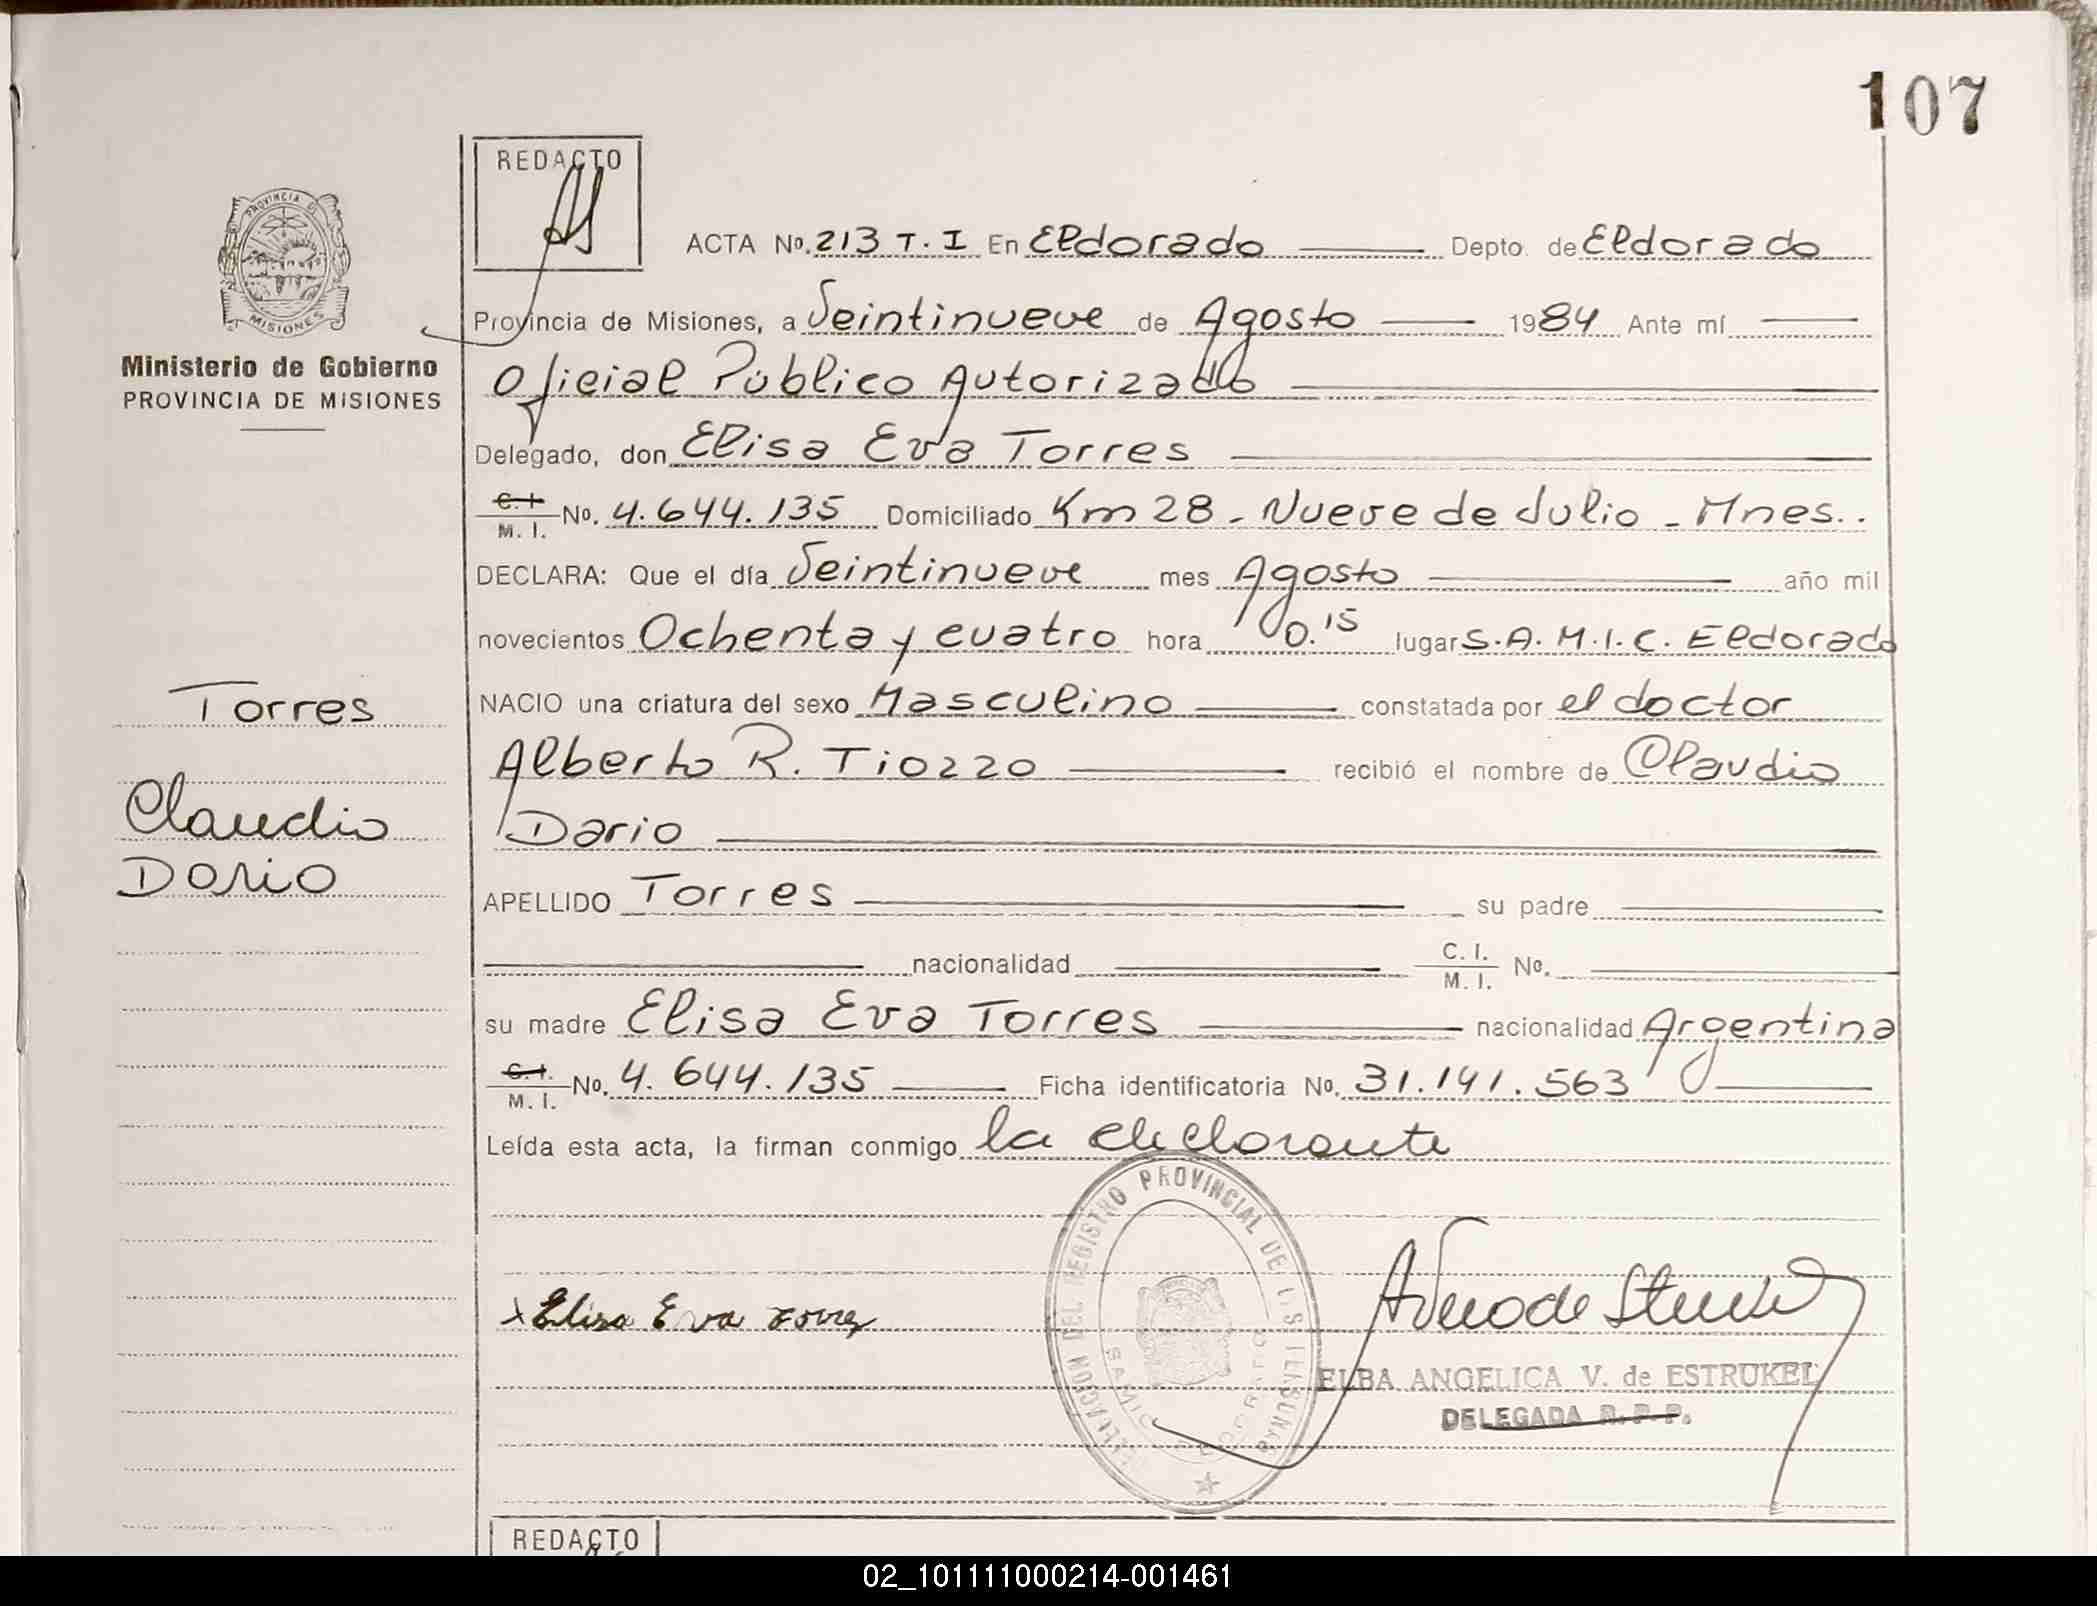 107
REDACTO
ACTA No. 213 T. I En Eldorado Depto. de Eldorado
PROVINCIA DE MISIONES
Provincia de Misiones, a Veintinueve de Agosto 1984 Ante mí
Ministerio de Gobierno
PROVINCIA DE MISIONES
Oficial Público Autorizado
Delegado, don Elisa Eva Torres
C. I. M. I. No. 4.644.135 Domiciliado Km 28 - Nueve de Julio - Mnes..
DECLARA: Que el día Veintinueve mes Agosto año mil
novecientos Ochenta y cuatro hora 0.15 lugar S.A.M.I.C. Eldorado
Torres
NACIO una criatura del sexo Masculino constatada por el doctor
Alberto R. Tiozzo recibió el nombre de Claudio
Claudio
Dario
Dario
APELLIDO Torres su padre
nacionalidad C. I. M. I. No.
su madre Elisa Eva Torres nacionalidad Argentina
C. I. M. I. No. 4.644.135 Ficha identificatoria No. 31.141.563
Leída esta acta, la firman conmigo la declarante
REGISTRO PROVINCIAL DE
x Elisa Eva Torres
ELBA ANGELICA V. de ESTRUKEL
DELEGADA R. P. P.
REDACTO
02_101111000214-001461